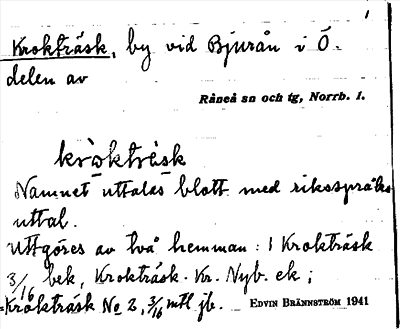 1
Krokträsk, by vid Bjurån i Ö.
delen av
Råneå sn och tg, Norrb. l.
kròkträ̀sk
Namnet uttalas blott med riksspråks
uttal.
Utgöres av två hemman: 1 Krokträsk
3/16 bek, Krokträsk. Kr. Nyb. ek;
Krokträsk No 2, 3/16 mtl jb. EDVIN BRÄNNSTRÖM 1941